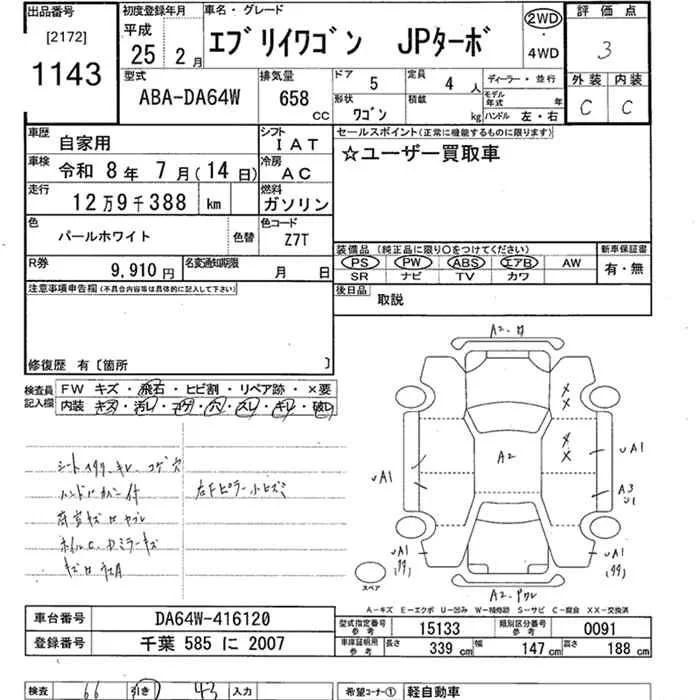 出品番号 初度登録年月 車名・グレード 2WD・4WD 評価点
[2172] 平成 エブリイワゴン JPターボ 3
1143 25年 2月
型式 排気量 ドア 5 定員 4人 ディーラー・並行 外装 内装
ABA-DA64W 658cc 形状 ワゴン 積載 kg モデル年式 年 ハンドル 左・右 C C
車歴 自家用 シフト IAT セールスポイント(正常に機能するものに限ります)
車検 令和 8年 7月(14日) 冷房 AC ☆ユーザー買取車
走行 12万9千388 km 燃料 ガソリン
色 パールホワイト 色替 色コード Z7T
装備品(純正品に限り○をつけてください) 新車保証書
R券 9,910円 名変通知期限 月 日 PS PW ABS エアB AW 有・無
SR ナビ TV カワ
注意事項申告欄(不具合内容等は具体的に記入して下さい) 後日品 取説
修復歴 有〔箇所 〕
検査員記入欄 FW キズ・飛石・ヒビ割・リペア跡・×要
内装 キズ・汚レ・コゲ・穴・スレ・キレ・破レ
A2
A2
UA1
UA1
A3
U1
UA1
UA1
スペア
A-キズ E-エクボ U-凹み W-補修跡 S-サビ C-腐食 XX-交換済
車台番号 DA64W-416120 型式指定番号 参考 15133 類別区分番号 参考 0091
登録番号 千葉 585 に 2007 車庫証明用 参考 長さ 339cm 幅 147cm 高さ 188cm
検査 66 引き 43 入力 希望コーナー① 軽自動車